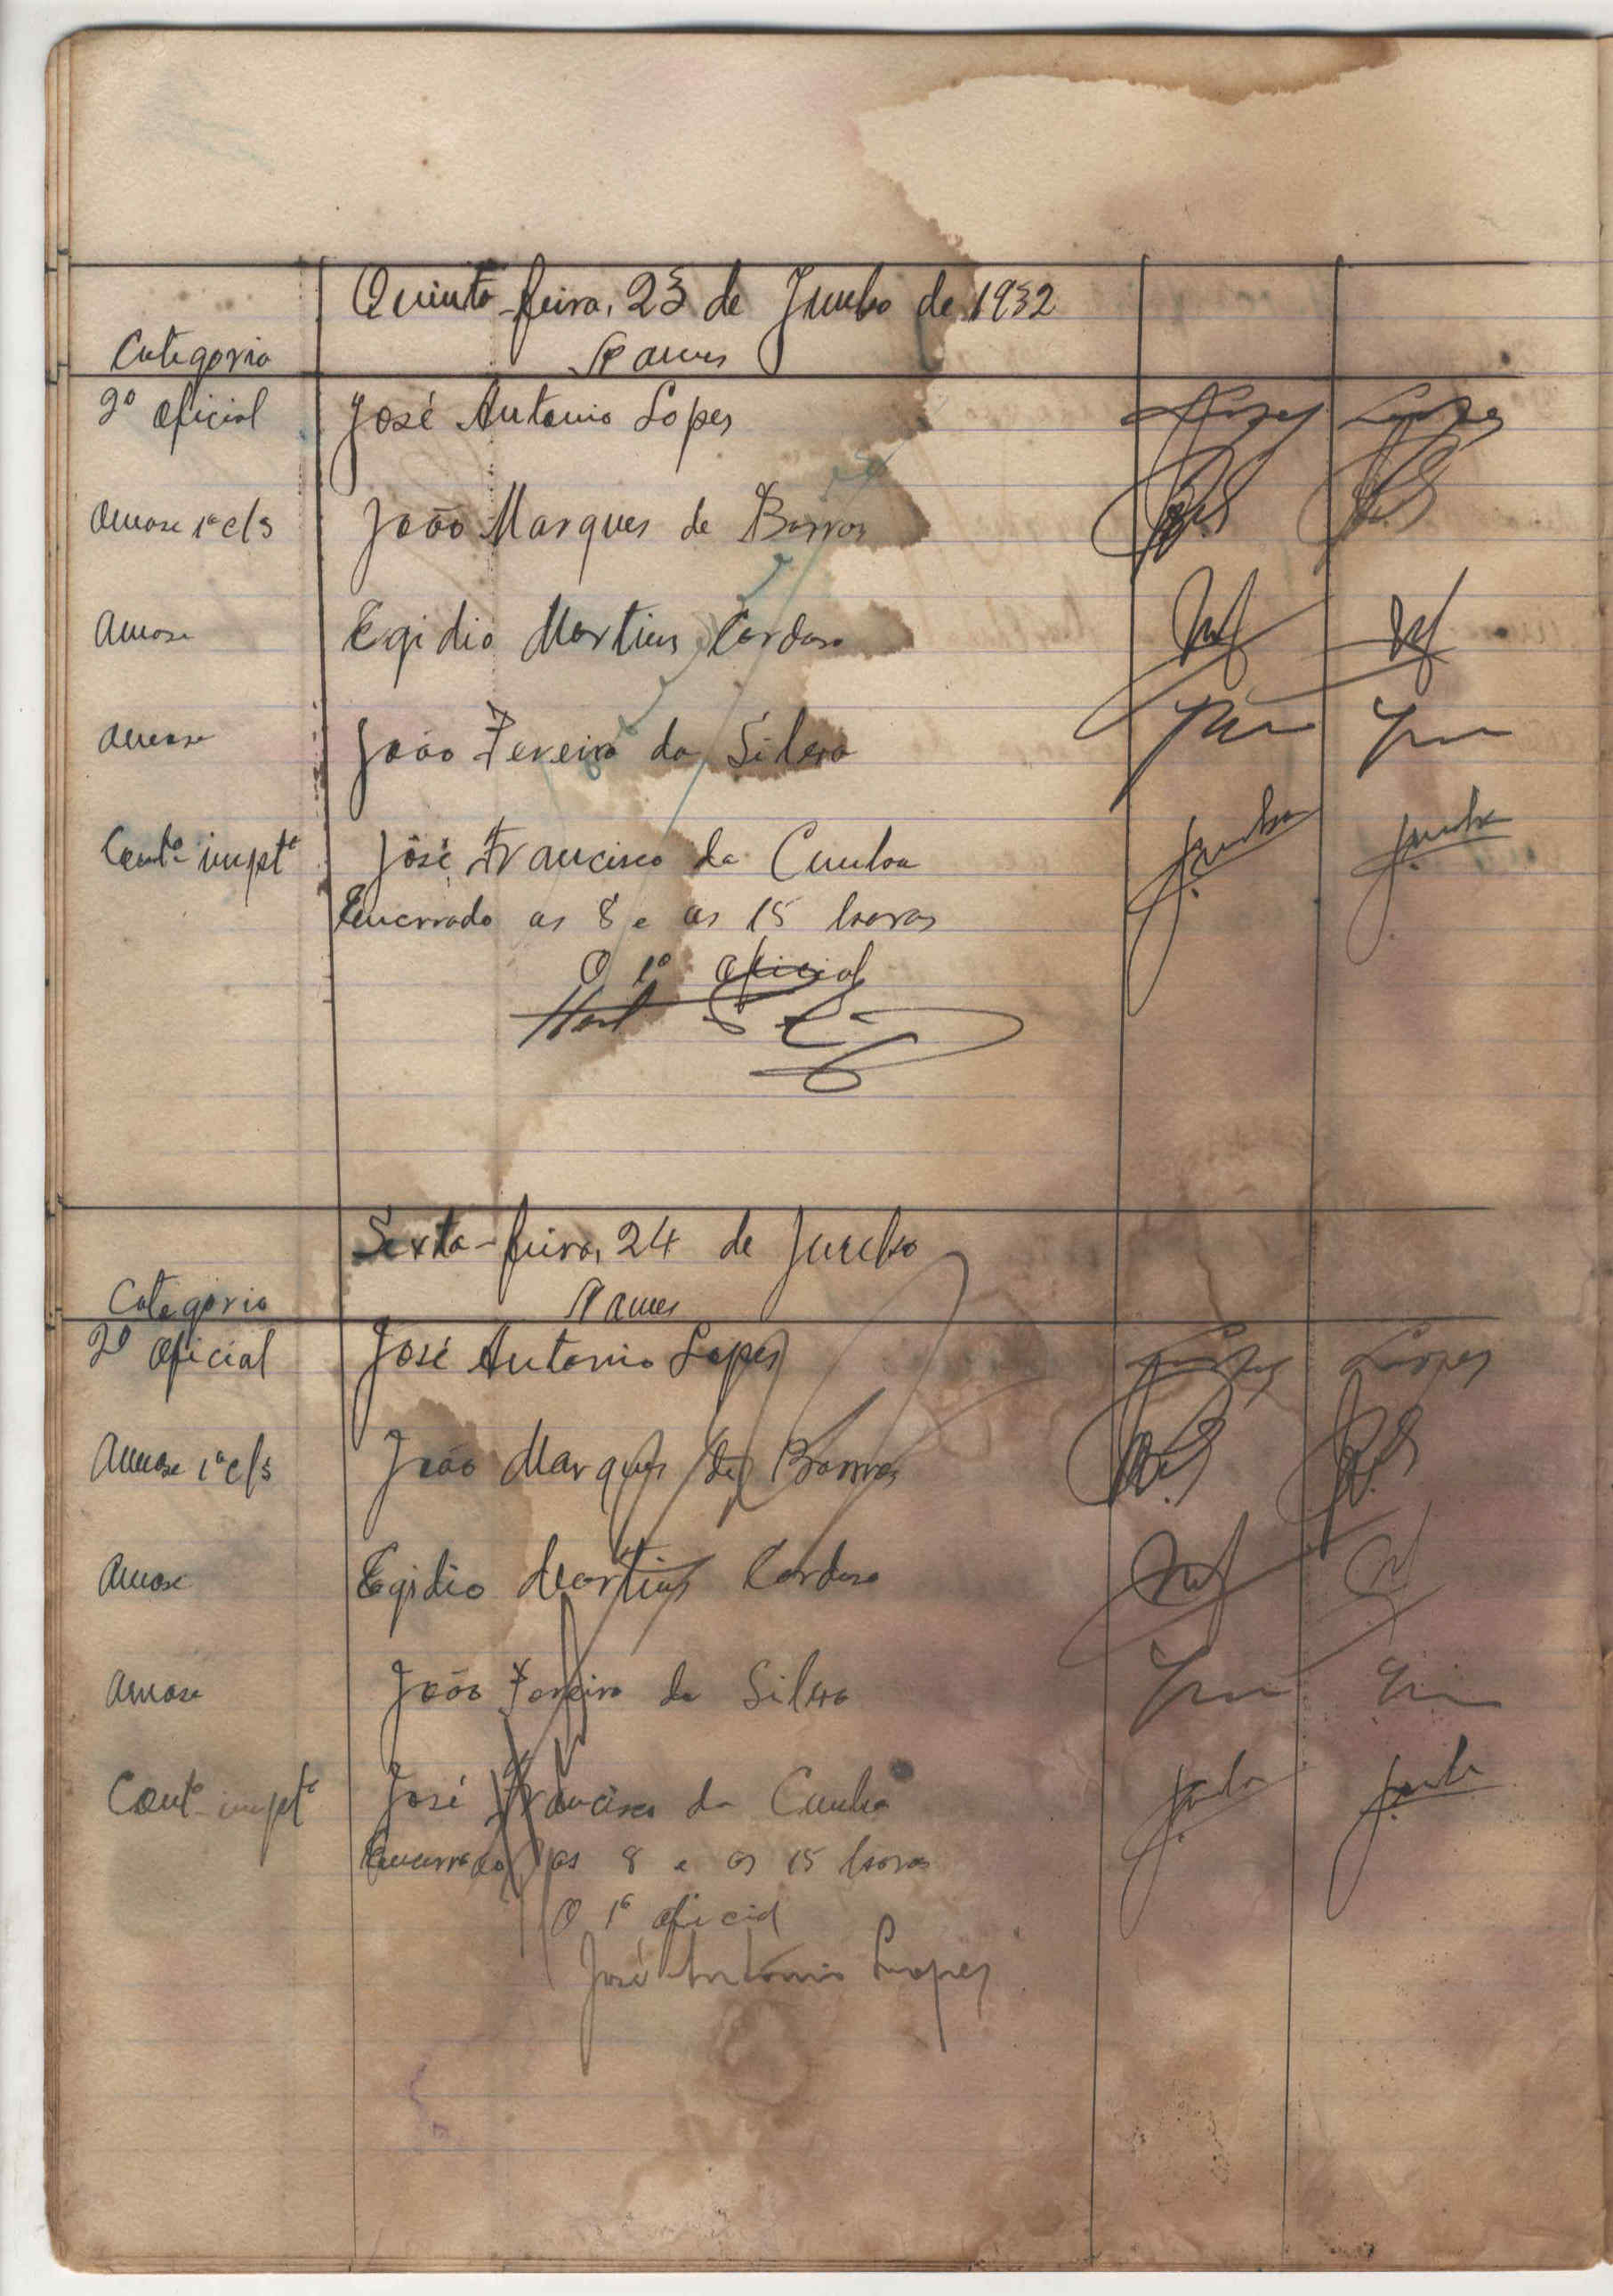 Quinta-feira, 23 de Junho de 1932
Categoria Nomes
2º Oficial José Antonio Lopes Lopes Lopes
Amase 1ª c/s João Marques de Barros
Amase Egidio Martins Cardoso
Amase João Pereira da Silva
Contº impte José Francisco da Cunha Jcunha Jcunha
Encerrado as 8 e as 15 horas
O 1º Oficial
Sexta-feira, 24 de Junho
Categoria Nomes
2º Oficial José Antonio Lopes Lopes Lopes
Amase 1ª c/s João Marques de Barros
Amase Egidio Martins Cardoso
Amase João Pereira da Silva
Contº impte José Francisco da Cunha Jcunha Jcunha
Encerrado as 8 e as 15 horas
O 1º Oficial
José Antonio Lopes